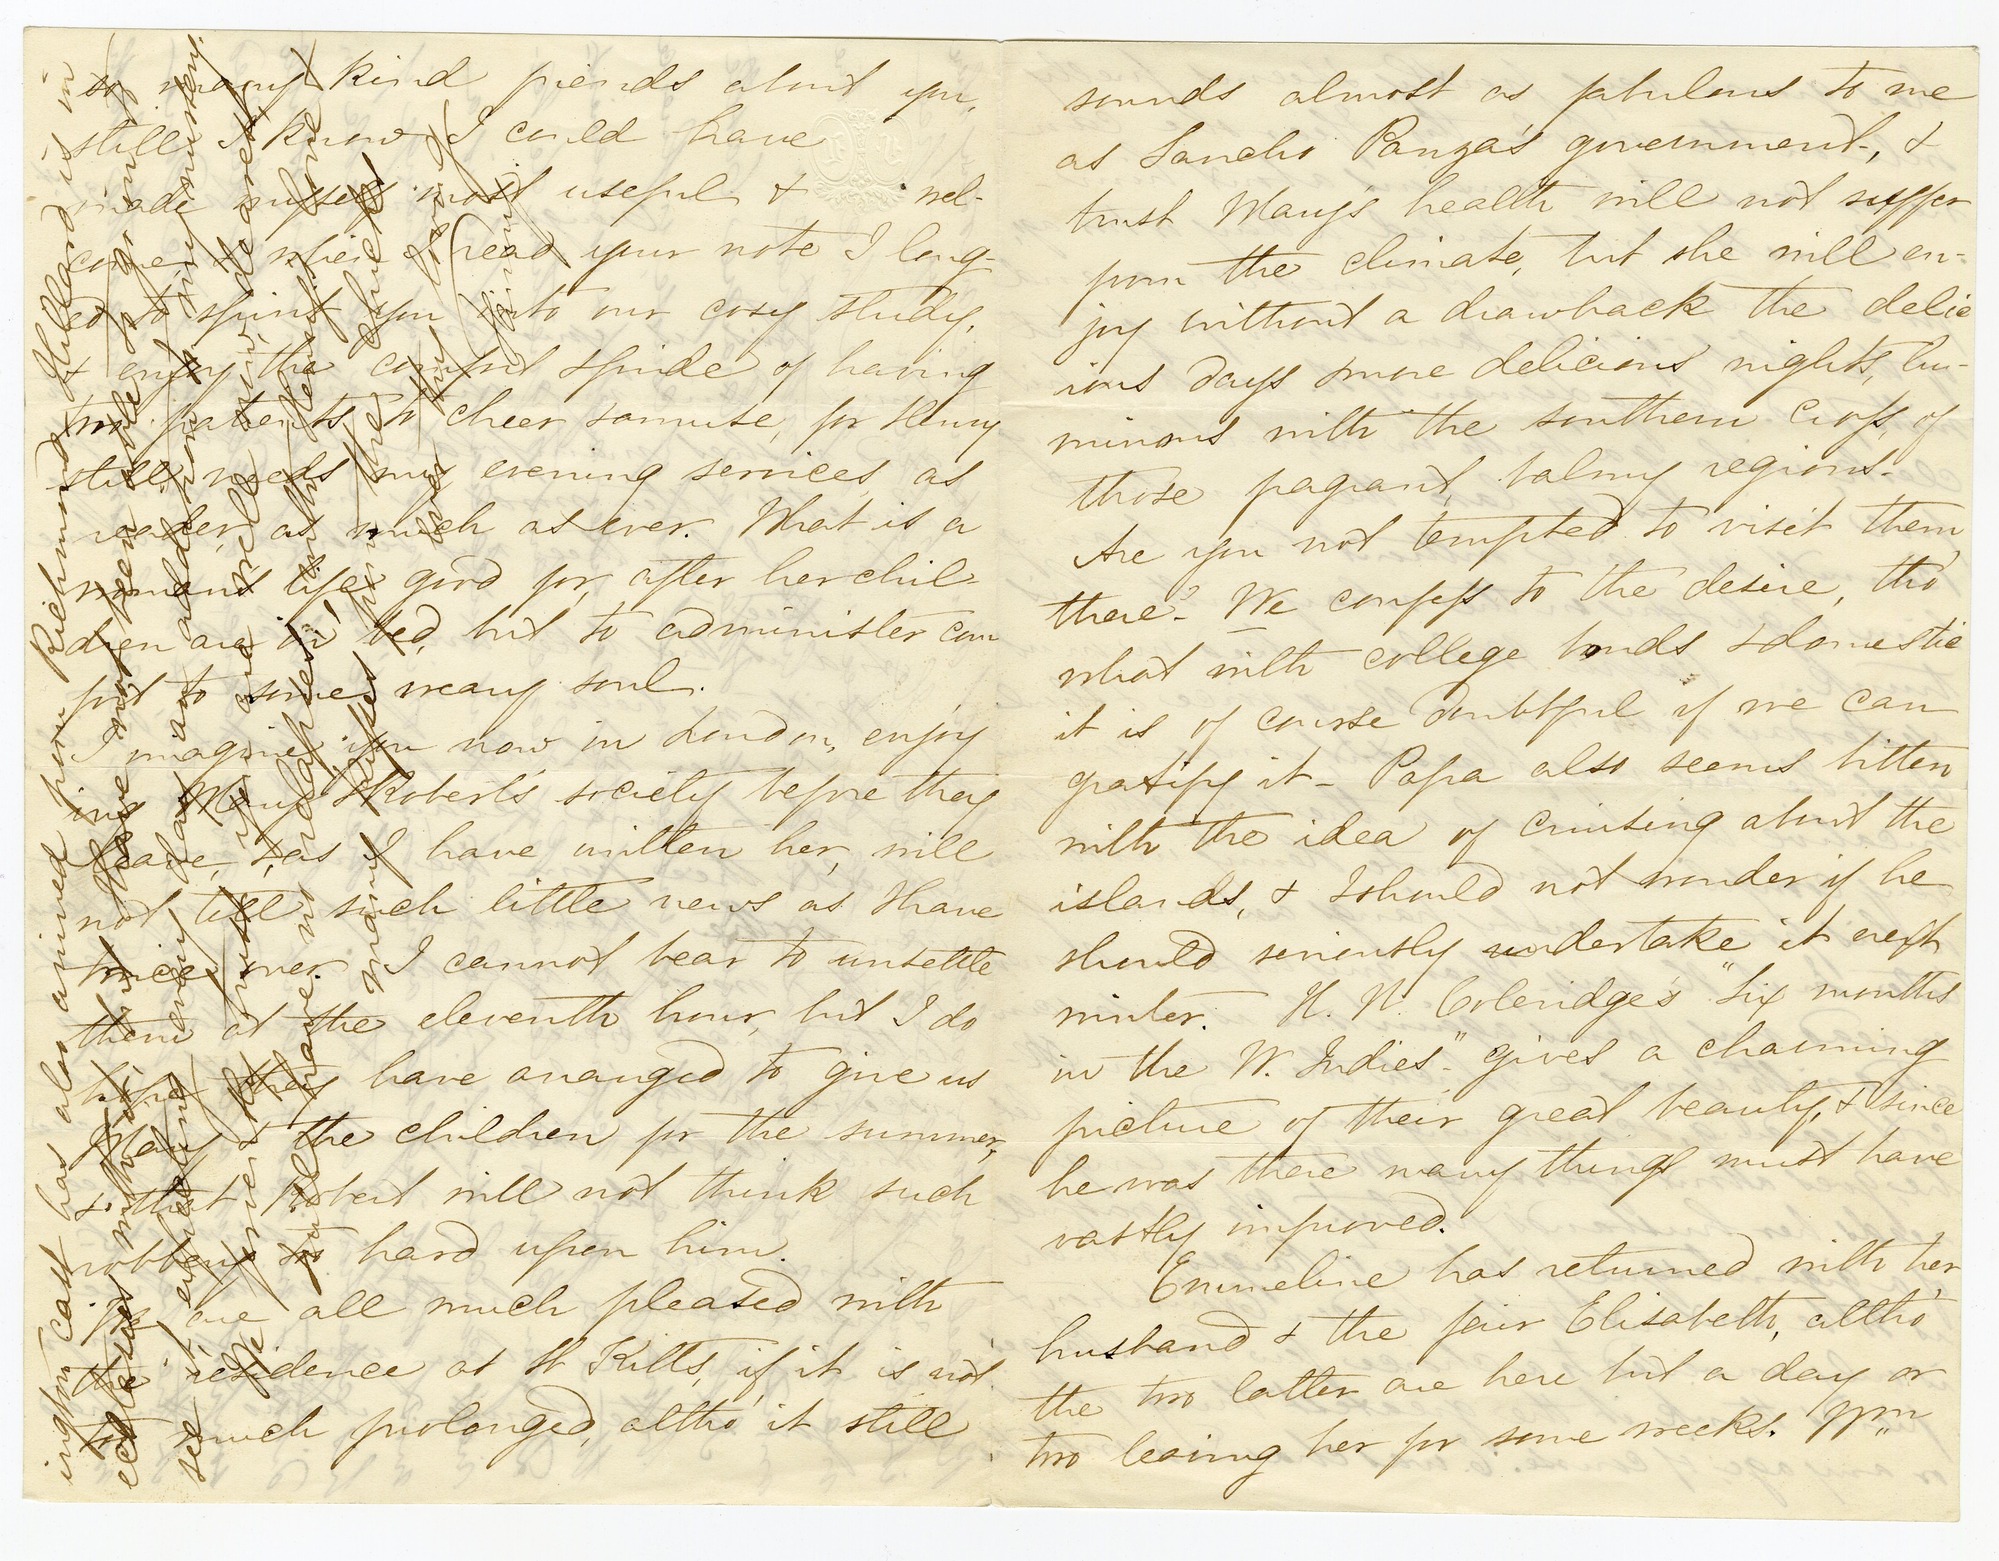 so many kind friends about you,
still I know I could have
made myself most useful & wel-
come, & when I read your note I long-
ed to spirit you into our cosy study,
& enjoy the comfort & pride of having
two patients to cheer & amuse, for Henry
still needs my evening services, as
reader, as much as ever. What is a
woman's life good for, after her chil-
dren are in bed, but to administer com
fort to some weary soul.
I imagine you now in London, enjoy
ing Mary & Robert's society before they
leave, & as I have written her, will
not tell such little news as I have
twice over. I cannot bear to unsettle
them at the eleventh hour, but I do
hope they have arranged to give us
Mary & the children for the summer,
& that Robert will not think such
robbery so hard upon him.
We are all much pleased with
the residence at St Kitts, if it is not
too much prolonged, altho' it still
sounds almost as fabulous to me
as Sancho Panza's government, &
trust Mary's health will not suffer
from the climate, but she will en-
joy without a drawback the delic
ious days & more delicious nights, lu-
minous with the southern cross, of
those fragrant, balmy regions.
Are you not tempted to visit them
there? We confess to the desire, tho'
what with college bonds & domestic
it is of course doubtful if we can
gratify it - Papa also seems bitten
with the idea of cruising about the
islands, & I should not wonder if he
should seriously undertake it next
winter. H. N. Coleridge's "Six months
in the W. Indies" gives a charming
picture of their great beauty, & since
he was there many things must have
vastly improved.
Emmeline has returned with her
husband & the fair Elisabeth, altho'
the two latter are here but a day or
two leaving her for some weeks. Wm
ington East has also arrived from Richmond & Hillard is in
see it
many kisses from